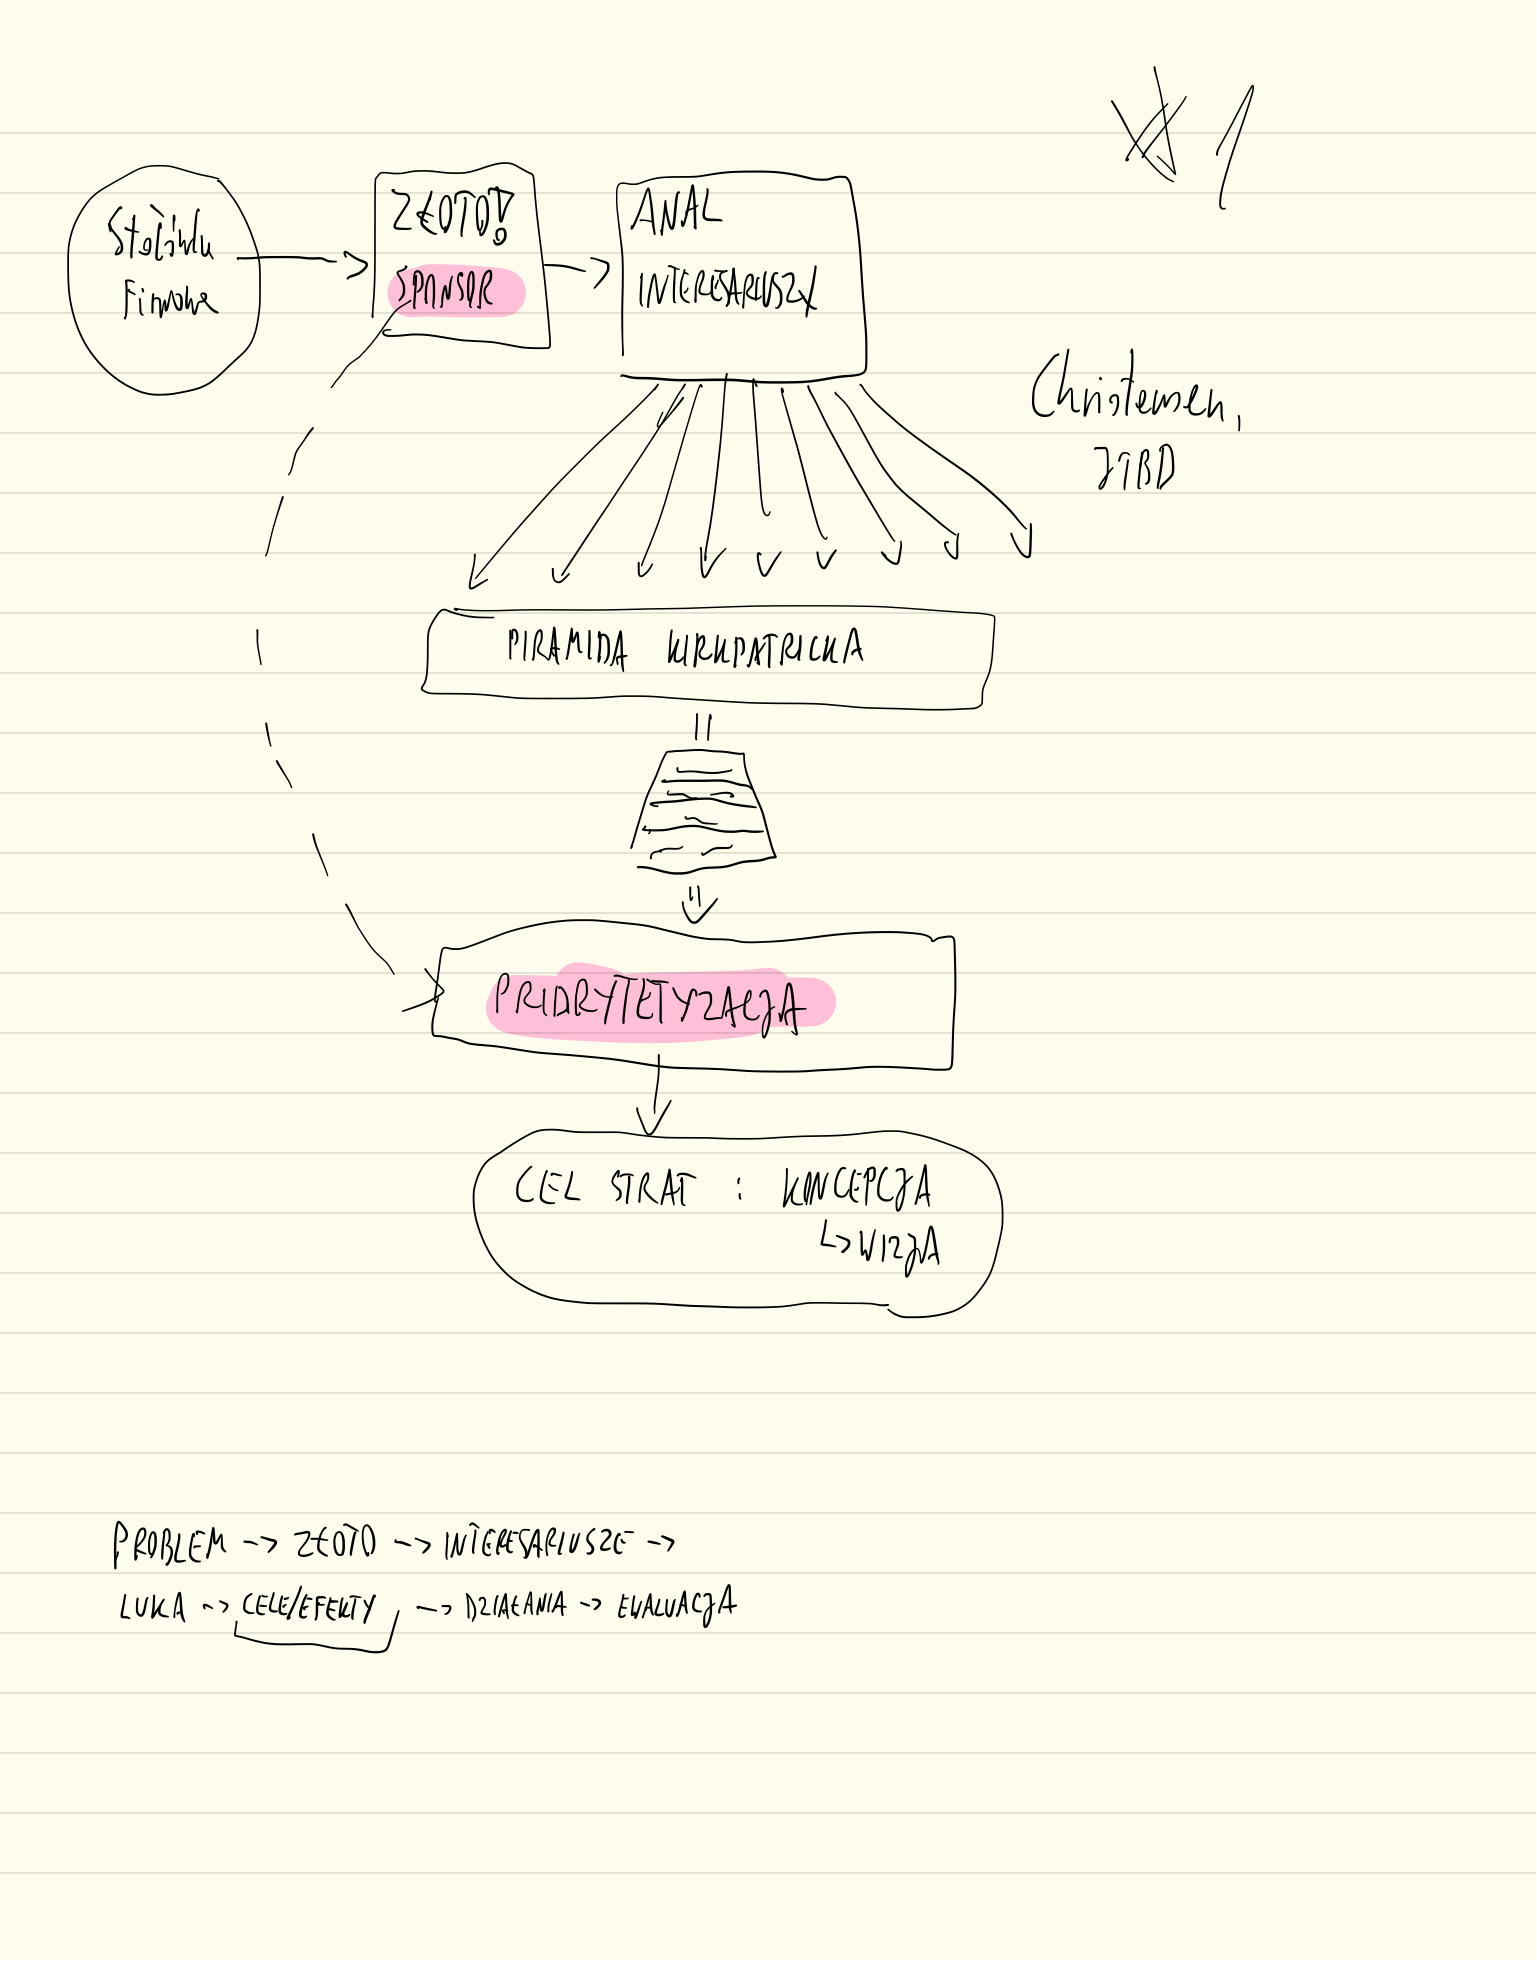 # 1
Stołówka
Firmowa
ZŁOTO!
SPONSOR
ANAL
INTERESARIUSZY
Christensen,
JTBD
PIRAMIDA KIRKPATRICKA
PRIORYTETYZACJA
CEL STRAT : KONCEPCJA
↳ WIZJA
PROBLEM -> ZŁOTO -> INTERESARIUSZE ->
LUKA -> CELE/EFEKTY -> DZIAŁANIA -> EWALUACJA